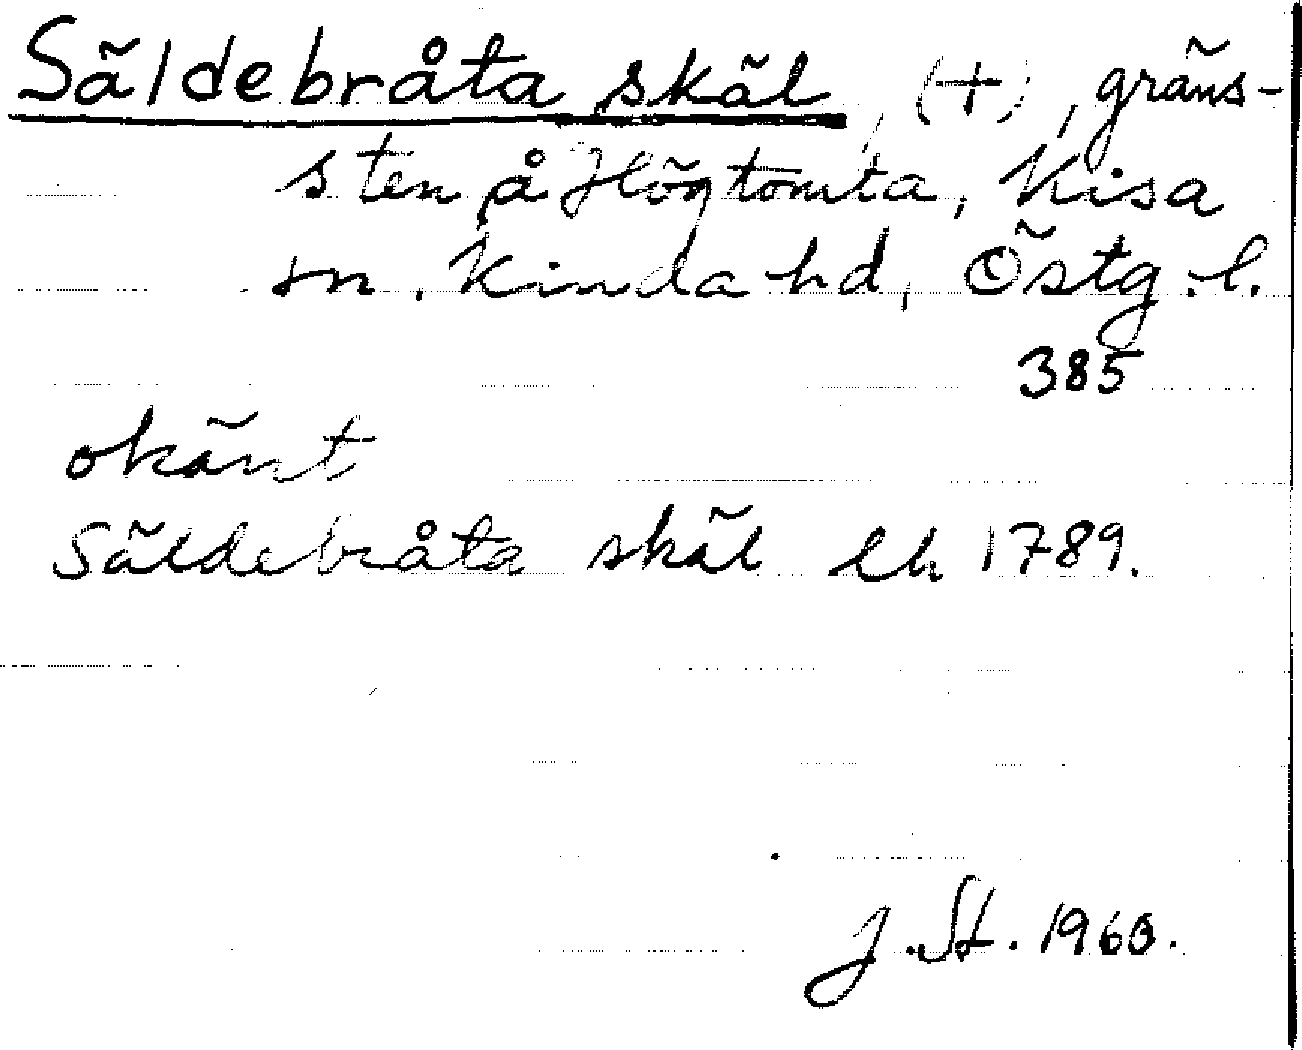 Säldebråta skäl, (+), gräns-
sten å Högtomta, Kisa
sn. Kinda hd, Östg. l.
385
okänt
Säldebråta skäl Lh 1789.
J. St. 1960.